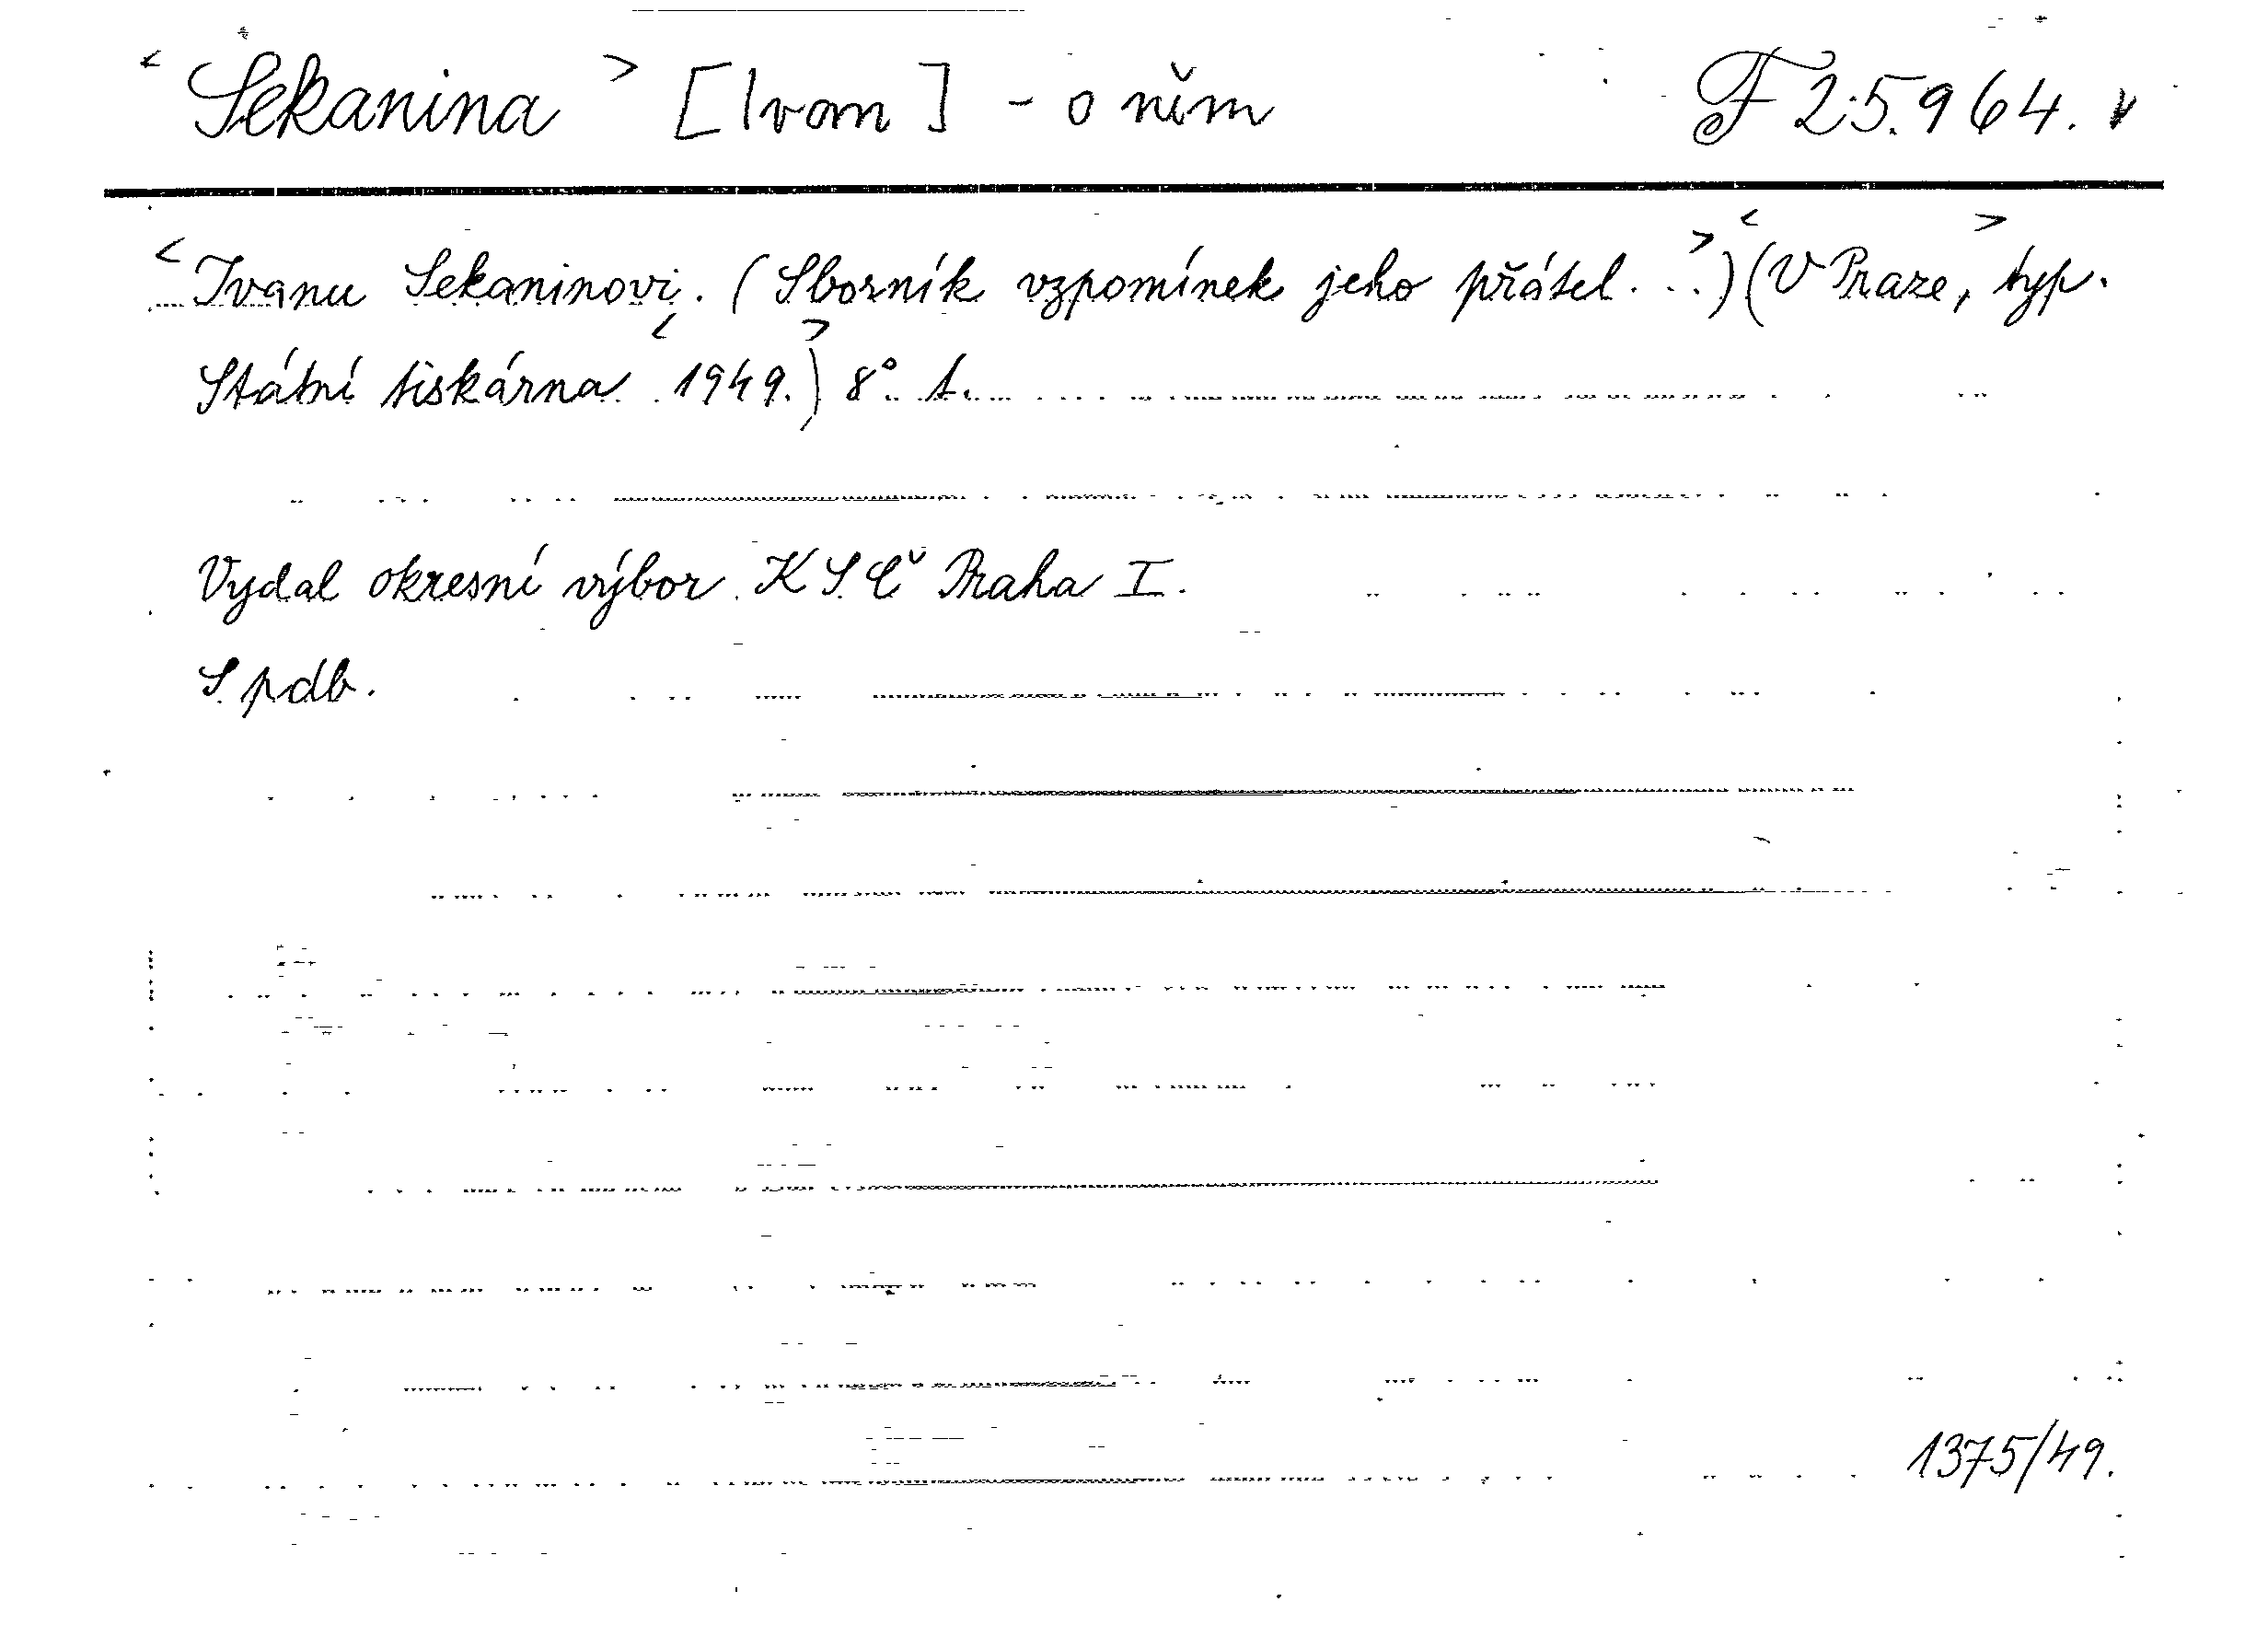 < Sekanina > [Ivan] - o něm F 25.964. v
< Ivanu Sekaninovi. (Sborník vzpomínek jeho přátel. . . >) < (V Praze, > typ.
Státní tiskárna < 1949. >) 8°. t.
Vydal okresní výbor KSČ Praha I.
S pdb.
1375/49.